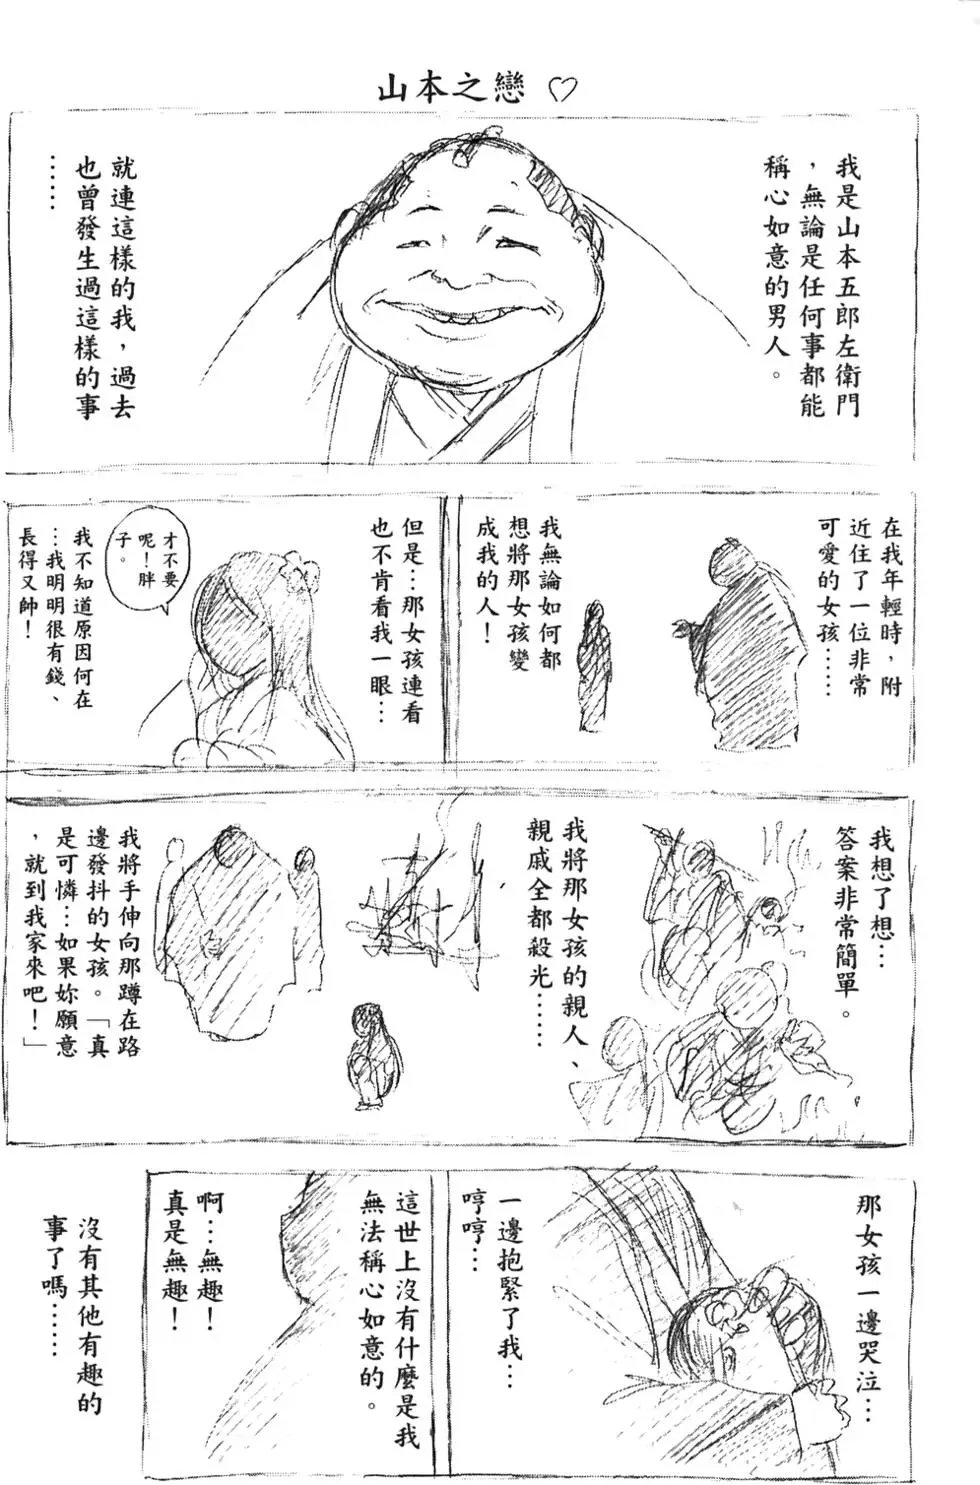 山本之戀♡
我是山本五郎左衛門
，無論是任何事都能
稱心如意的男人。
就連這樣的我，過去
也曾發生過這樣的事
……
在我年輕時，附
近住了一位非常
可愛的女孩……
我無論如何都
想將那女孩變
成我的人！
但是…那女孩連看
也不肯看我一眼…
才不要
呢！胖
子。
我不知道原因何在
…我明明很有錢、
長得又帥！
我想了想…
答案非常簡單。
我將那女孩的親人、
親戚全都殺光……
我將手伸向那蹲在路
邊發抖的女孩。「真
是可憐…如果妳願意
，就到我家來吧！」
那女孩一邊哭泣…
一邊抱緊了我…
哼哼…
這世上沒有什麼是我
無法稱心如意的。
啊…無趣！
真是無趣！
沒有其他有趣的
事了嗎……